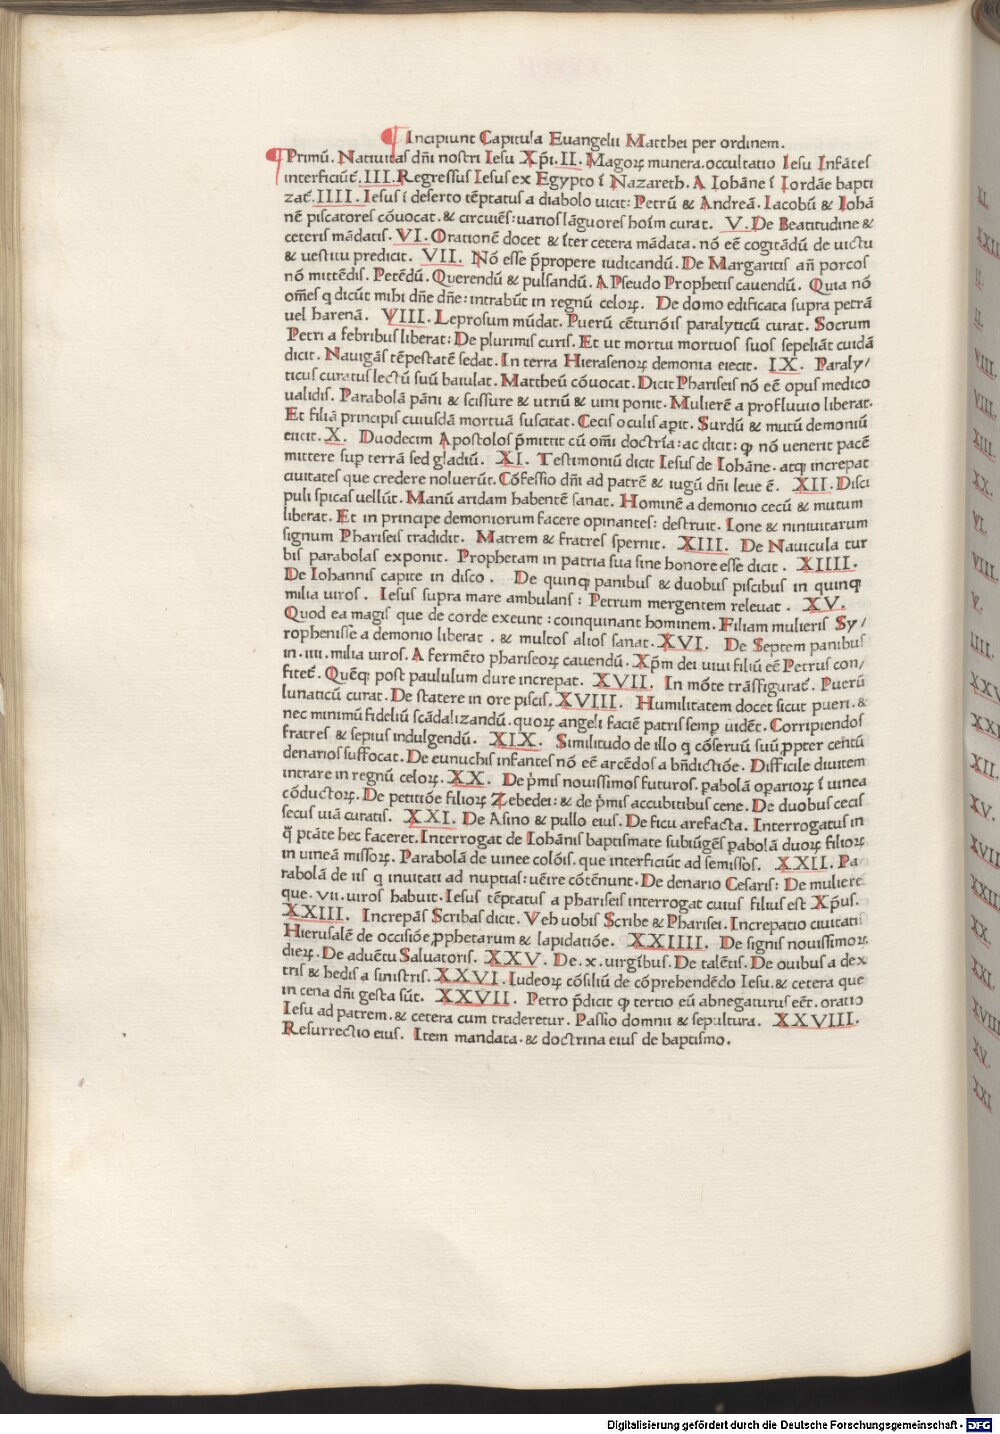 ¶ Incipiunt Capitula Euangelii Matthei per ordinem.
¶ Primū. Natiuitas dñi nostri Iesu Xp̄i. II. Magoꝝ munera. occultatio Iesu Infātes
interficiūt̄. III. Regressus Iesus ex Egypto ī Nazareth. A Iohāne ī Iordāe bapti
zat̄. IIII. Iesus ī deserto tēptatus a diabolo uicit: Petrū & Andreā. Iacobū & Iohā
nē piscatores cōuocat. & circuiēs: uarios lāguores hoīm curat. V. De Beatitudine &
ceteris mādatis. VI. Orationē docet & īter cetera mādata. nō eē cogitādū de uictu
& uestitu predicit. VII. Nō esse p̄propere iudicandū. De Margaritis añ porcos
nō mittēdis. Petēdū. Querendū & pulsandū. A Pseudo Prophetis cauendū. Quia nō
om̄es q dicūt mihi dñe dñe: intrabūt in regnū celoꝝ. De domo edificata supra petrā
uel harenā. VIII. Leprosum mūdat. Puerū cēturiōis paralyticū curat. Socrum
Petri a febribus liberat: De plurimis curis. Et ut mortui mortuos suos sepeliāt cuidā
dicit. Nauigās tēpestatē sedat. In terra Hierasenoꝝ demonia eiecit. IX. Paraly/
ticus curatus lectū suū baiulat. Mattheū cōuocat. Dicit Phariseis nō eē opus medico
ualidis. Parabolā pāni & scissure & utriū & uini ponit. Mulierē a profluuio liberat.
Et filiā principis cuiusdā mortuā suscitat. Cecis oculis apit. Surdū & mutū demoniū
eiicit. X. Duodecim Apostolos p̄mittit cū om̄i doctrīa: ac dicit: ꝙ nō uenerit pacē
mittere sup terrā sed gladiū. XI. Testimoniū dicit Iesus de Iohāne. atqꝫ increpat
ciuitates que credere noluerūt. Cōfessio dñi ad patrē & iugū dñi leue ē. XII. Disci
puli spicas uellūt. Manū aridam habentē sanat. Hominē a demonio cecū & mutum
liberat. Et in principe demoniorum facere opinantes: destruit. Ione & niniuitarum
signum Phariseis tradidit. Matrem & fratres spernit. XIII. De Nauicula tur
bis parabolas exponit. Prophetam in patria sua sine honore esse dicit. XIIII.
De Iohannis capite in disco. De quinqꝫ panibus & duobus piscibus in quinqꝫ
milia uiros. Iesus supra mare ambulans: Petrum mergentem releuat. XV.
Quod ea magis que de corde exeunt: coinquinant hominem. Filiam mulieris Sy/
rophenisse a demonio liberat. & multos alios sanat. XVI. De Septem panibus
in. iiii. milia uiros. A fermēto phariseoꝝ cauendū. Xp̄m dei uiui filiū eē Petrus con/
fitet̄. Quēqꝫ post paululum dure increpat. XVII. In mōte trāsfigurat̄. Puerū
lunaticū curat. De statere in ore piscis. XVIII. Humilitatem docet sicut pueri. &
nec minimū fideliū scādalizandū. quoꝝ angeli faciē patris semꝑ uidēt. Corripiendos
fratres & sepius indulgendū. XIX. Similitudo de illo q cōseruū suū ꝓpter centū
denarios suffocat. De eunuchis infantes nō eē arcēdos a bñdictiōe. Difficile diuitem
intrare in regnū celoꝝ. XX. De p̄mis nouissimos futuros. ꝑabolā oꝑarioꝝ ī uinea
cōductoꝝ. De petitiōe filioꝝ Zebedei: & de p̄mis accubitibus cene. De duobus cecis
secus uiā curatis. XXI. De Asino & pullo eius. De ficu arefacta. Interrogatus in
q̄ ptāte hec faceret. Interrogat de Iohānis baptismate subiūgēs ꝑabolā duoꝝ filioꝝ
in uineā missoꝝ. Parabolā de uinee colōis. que interficiūt ad semissos. XXII. Pa-
rabolā de iis q inuitati ad nuptias: uēire cōtēnunt. De denario Cesaris: De muliere
que. vii. uiros habuit. Iesus tēptatus a phariseis interrogat cuius filius est Xp̄us.
XXIII. Increpās Scribas dicit. Veh uobis Scribe & Pharisei. Increpatio ciuitatis
Hierusalē de occisiōe ꝓphetarum & lapidatiōe. XXIIII. De signis nouissimoꝝ
dieꝝ. De aduētu Saluatoris. XXV. De. x. uirgībus. De talētis. De ouibus a dex
tris & hedis a sinistris. XXVI. Iudeoꝝ cōsiliū de cōprehendēdo Iesu. & cetera que
in cena dñi gesta sūt. XXVII. Petro p̄dicit ꝙ tertio eū abnegaturus eēt. oratio
Iesu ad patrem. & cetera cum traderetur. Passio domini & sepultura. XXVIII.
Resurrectio eius. Item mandata. & doctrina eius de baptismo.
XI.
XXII
II.
II.
VIII.
VIII.
XIII.
XX.
VI.
VIII.
V.
IIII.
XXV
XXI
XII.
XV.
XVII
XXIII
XX.
XXI.
XVIII
XV.
XXI
Digitalisierung gefördert durch die Deutsche Forschungsgemeinschaft - DFG